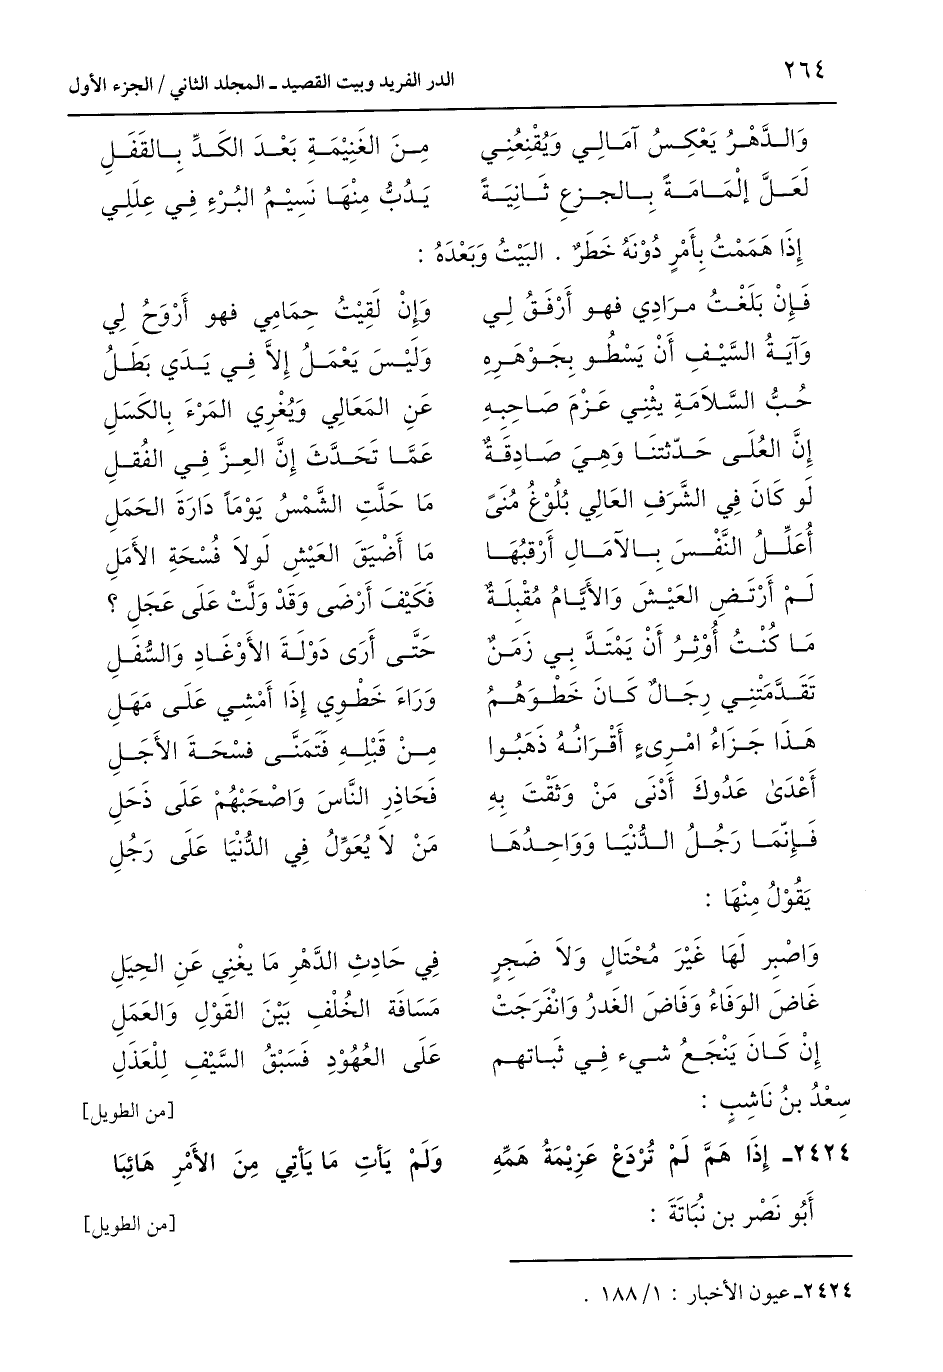 ٢٦٤
الدر الفريد وبيت القصيد ـ المجلد الثاني / الجزء الأول
وَالدَّهْرُ يَعْكِسُ آمَالِي وَيُقْنِعُنِي مِنَ الغَنِيْمَةِ بَعْدَ الكَدِّ بِالقَفَلِ
لَعَلَّ إلْمَامَةً بِالجزعِ ثَانِيَةً يَدُبُّ مِنْهَا نَسِيْمُ البُرْءِ فِي عِلَلِي
إِذَا هَمَمْتُ بِأَمْرٍ دُوْنَهُ خَطَرٌ . البَيْتُ وَبَعْدَهُ :
فَإِنْ بَلَغْتُ مرَادِي فهو أَرْفَقُ لِي وَإِنْ لَقِيْتُ حِمَامِي فهو أَرْوَحُ لِي
وَآيَةُ السَّيْفِ أَنْ يَسْطُو بِجَوْهَرِهِ وَلَيْسَ يَعْمَلُ إلاَّ فِي يَدَي بَطَلُ
حُبُّ السَّلاَمَةِ يثْنِي عَزْمَ صَاحِبِهِ عَنِ المَعَالِي وَيُغْرِي المَرْءَ بِالكَسَلِ
إِنَّ العُلَى حَدّثتنَا وَهِيَ صَادِقَةٌ عَمَّا تَحَدَّثَ إِنَّ العِزَّ فِي الفُقلِ
لَو كَانَ فِي الشَّرَفِ العَالِي بُلُوْغُ مُنَىً مَا حَلَّتِ الشَّمْسُ يَوْمَاً دَارَةَ الحَمَلِ
أُعَلِّلُ النَّفْسَ بِالآمَالِ أَرْقبُهَا مَا أَضْيَقَ العَيْشِ لَولاَ فُسْحَةِ الأَمَلِ
لَمْ أَرْتَضِ العَيْشَ وَالأَيَّامُ مُقْبِلَةٌ فَكَيْفَ أَرْضَى وَقَدْ وَلَّتْ عَلَى عَجَلِ ؟
مَا كُنْتُ أُوْثِرُ أَنْ يَمْتَدَّ بِي زَمَنٌ حَتَّى أَرَى دَوْلَةَ الأَوْغَادِ وَالسُّفَلِ
تَقَدَّمَتْنِي رِجَالٌ كَانَ خَطْوَهُمُ وَرَاءَ خَطْوِي إِذَا أَمْشِي عَلَى مَهَلِ
هَذَا جَزَاءُ امْرِىءٍ أَقْرَانُهُ ذَهَبُوا مِنْ قَبْلِهِ فَتَمَنَّى فسْحَةَ الأَجَلِ
أَعْدَىْ عَدُوكَ أَدْنَى مَنْ وَثقْتَ بِهِ فَحَاذِرِ النَّاسَ وَاصْحَبْهُمْ عَلَى دَخَلِ
فَإِنّمَا رَجُلُ الدُّنْيَا وَوَاحِدُهَا مَنْ لاَ يُعَوِّلُ فِي الدُّنْيَا عَلَى رَجُلِ
يَقُوْلُ مِنْهَا :
وَاصْبِر لَهَا غَيْرَ مُحْتَالٍ وَلاَ ضَجِرٍ فِي حَادِثِ الدَّهْرِ مَا يغْنِي عَنِ الحِيَلِ
غَاضَ الوَفَاءُ وَفَاضَ الغَدرُ وَانْفَرَجَتْ مَسَافَة الخُلْفِ بَيْنَ القَوْلِ وَالعَمَلِ
إِنْ كَانَ يَنْجَعُ شيء فِي ثَبَاتهم عَلَى العُهُوْدِ فَسَبْقُ السَّيْفِ لِلْعَذَلِ
سَعْدُ بنُ نَاشِبٍ : [من الطويل]
٢٤٢٤ـ إِذَا هَمَّ لَمْ تُرْدَعْ عَزِيْمَةُ هَمِّهِ وَلَمْ يَأتِ مَا يَأتِي مِنَ الأَمْرِ هَائِبَا
أَبُو نَصْرِ بن نُبَاتَةَ : [من الطويل]
٢٤٢٤ـ عيون الأخبار : ١/ ١٨٨ .